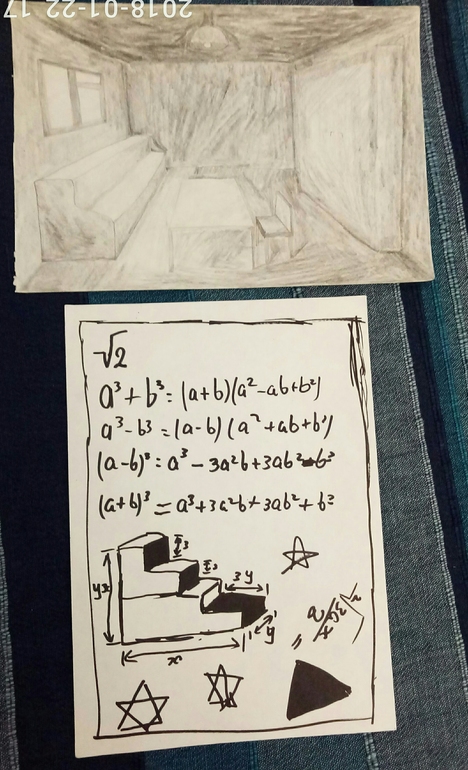 2018-01-22 17
√2
a³+b³=(a+b)(a²-ab+b²)
a³-b³=(a-b)(a²+ab+b²)
(a-b)³=a³-3a²b+3ab²-b³
(a+b)³=a³+3a²b+3ab²+b³
3
3
3y
yx
y
x